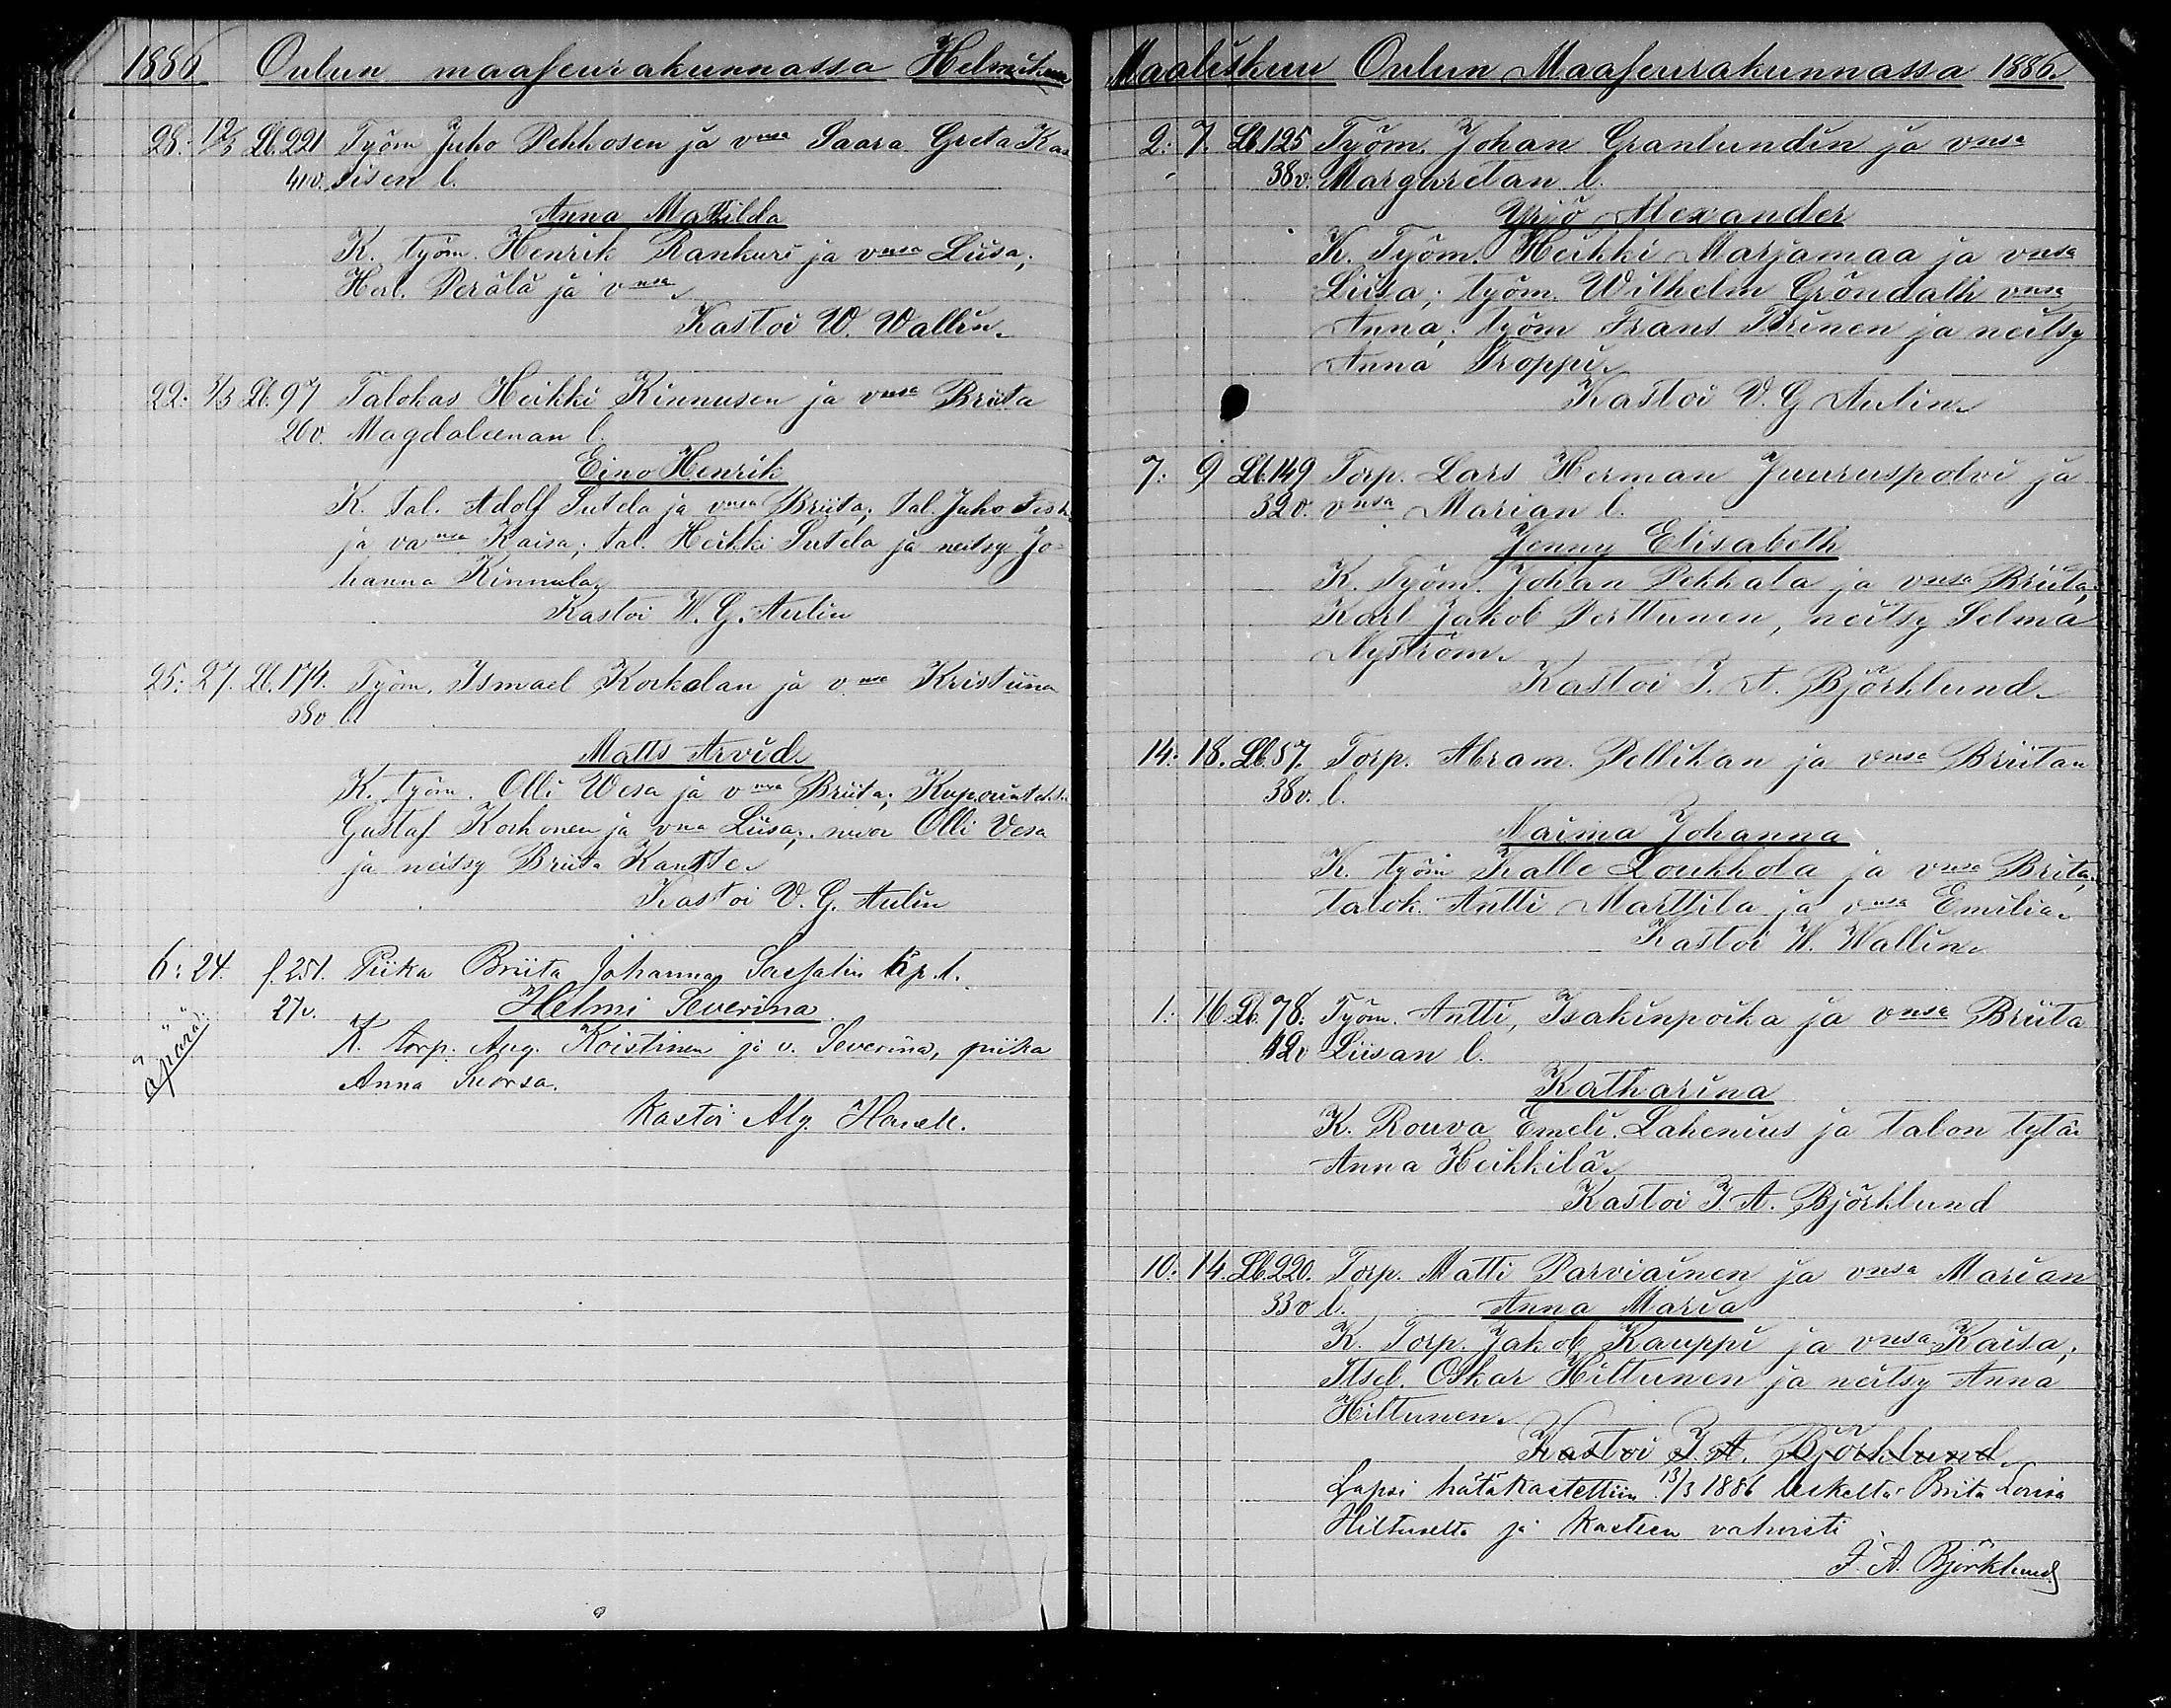 1886 Oulun maaseurakunnassa Helmikuu
28: 12/3 Lb. 221 Työm Juho Pehkosen ja vnsa Saara Greta Ka=
41 v. sisen l.
Anna Matilda
K. työm. Henrik Rankuri ja vnsa Liisa;
Herl. Perälä ja vnsa
Kastoi W. Wallin.
22: 3/3 Lb. 97 Talokas Heikki Kinnusen ja vnsa Briita
26 v. Magdaleenan l.
Eino Henrik
K. tal. Adolf Sutela ja vnsa Briita; tal. Juho
ja vansa Kaisa; tal. Heikki Sutela ja neitsy Jo=
hanna Kinnula.
Kastoi W. G. Aulin
25: 27. Lb. 174. Työm. Ismael Korkalan ja vnsa Kristiina
38 v l.
Matts Arvid.
K. työm. Olli Wesa ja vnsa Briita;
Gustaf Korhonen ja vnsa Liisa; nuor Olli Vesa
ja neitsy Briita Kantte.
Kastoi V. G. Aulin
6: 24. f. 251. Piika Briita Johanna äp. l.
äpärä. 27 v. Helmi Severina
K. torp. Aug. Koistinen ja v. Severina, piika
Anna Suorsa.
Kastoi Alg.
Maaliskuu Oulun Maaseurakunnassa 1886.
2: 7. Lb. 125 Työm. Johan Granlundin ja vnsa
38 v. Margaretan l.
Yrjö Alexander
K. Työm. Heikki Marjamaa ja vnsa
Liisa; työm. Wilhelm Gröndalh vnsa
Anna; työm Frans Piirinen ja neitsy
Anna Troppi.
Kastoi V. G Aulin.
7: 9 Lb. 149 Torp. Lars Herman Juuruspolvi ja
32 v. vnsa Marian l.
Jenny Elisabeth
K. Työm. Johan Pekkala ja vnsa Briita,
Karl Jakob Perttunen, neitsy Selma
Nyström.
Kastoi J. A. Björklund.
14: 18. Lb. 57. Torp. Abram. Pellikan ja vnsa Briitan
38 v. l.
Naima Johanna
K. työm Kalle Loukkola ja vnsa Brita,
talok. Antti Marttila ja vnsa Emilia.
Kastoi W. Wallin.
1: 16. Lb. 78. Työm. Antti, Isakinpoika ja vnsa Briita
42 v Liisan l.
Katharina
K. Rouva Emeli. Lahenius ja talon tytär
Anna Heikkilä.
Kastoi J. A. Björklund
10: 14. Lb. 220. Torp. Matti Parviainen ja vnsa Marian
33 v l. Anna Maria
K. Torp. Jakob Kauppi ja vnsa Kaisa;
Itsel. Oskar Hiltunen ja neitsy Anna
Hiltunen.
Kastoi J. A. Björklund.
Lapsi hätäkastettiin 13/3 1886 leskeltä Briita Lovisa
Hiltuselta ja kasteen vahvisti
J. A. Björklund